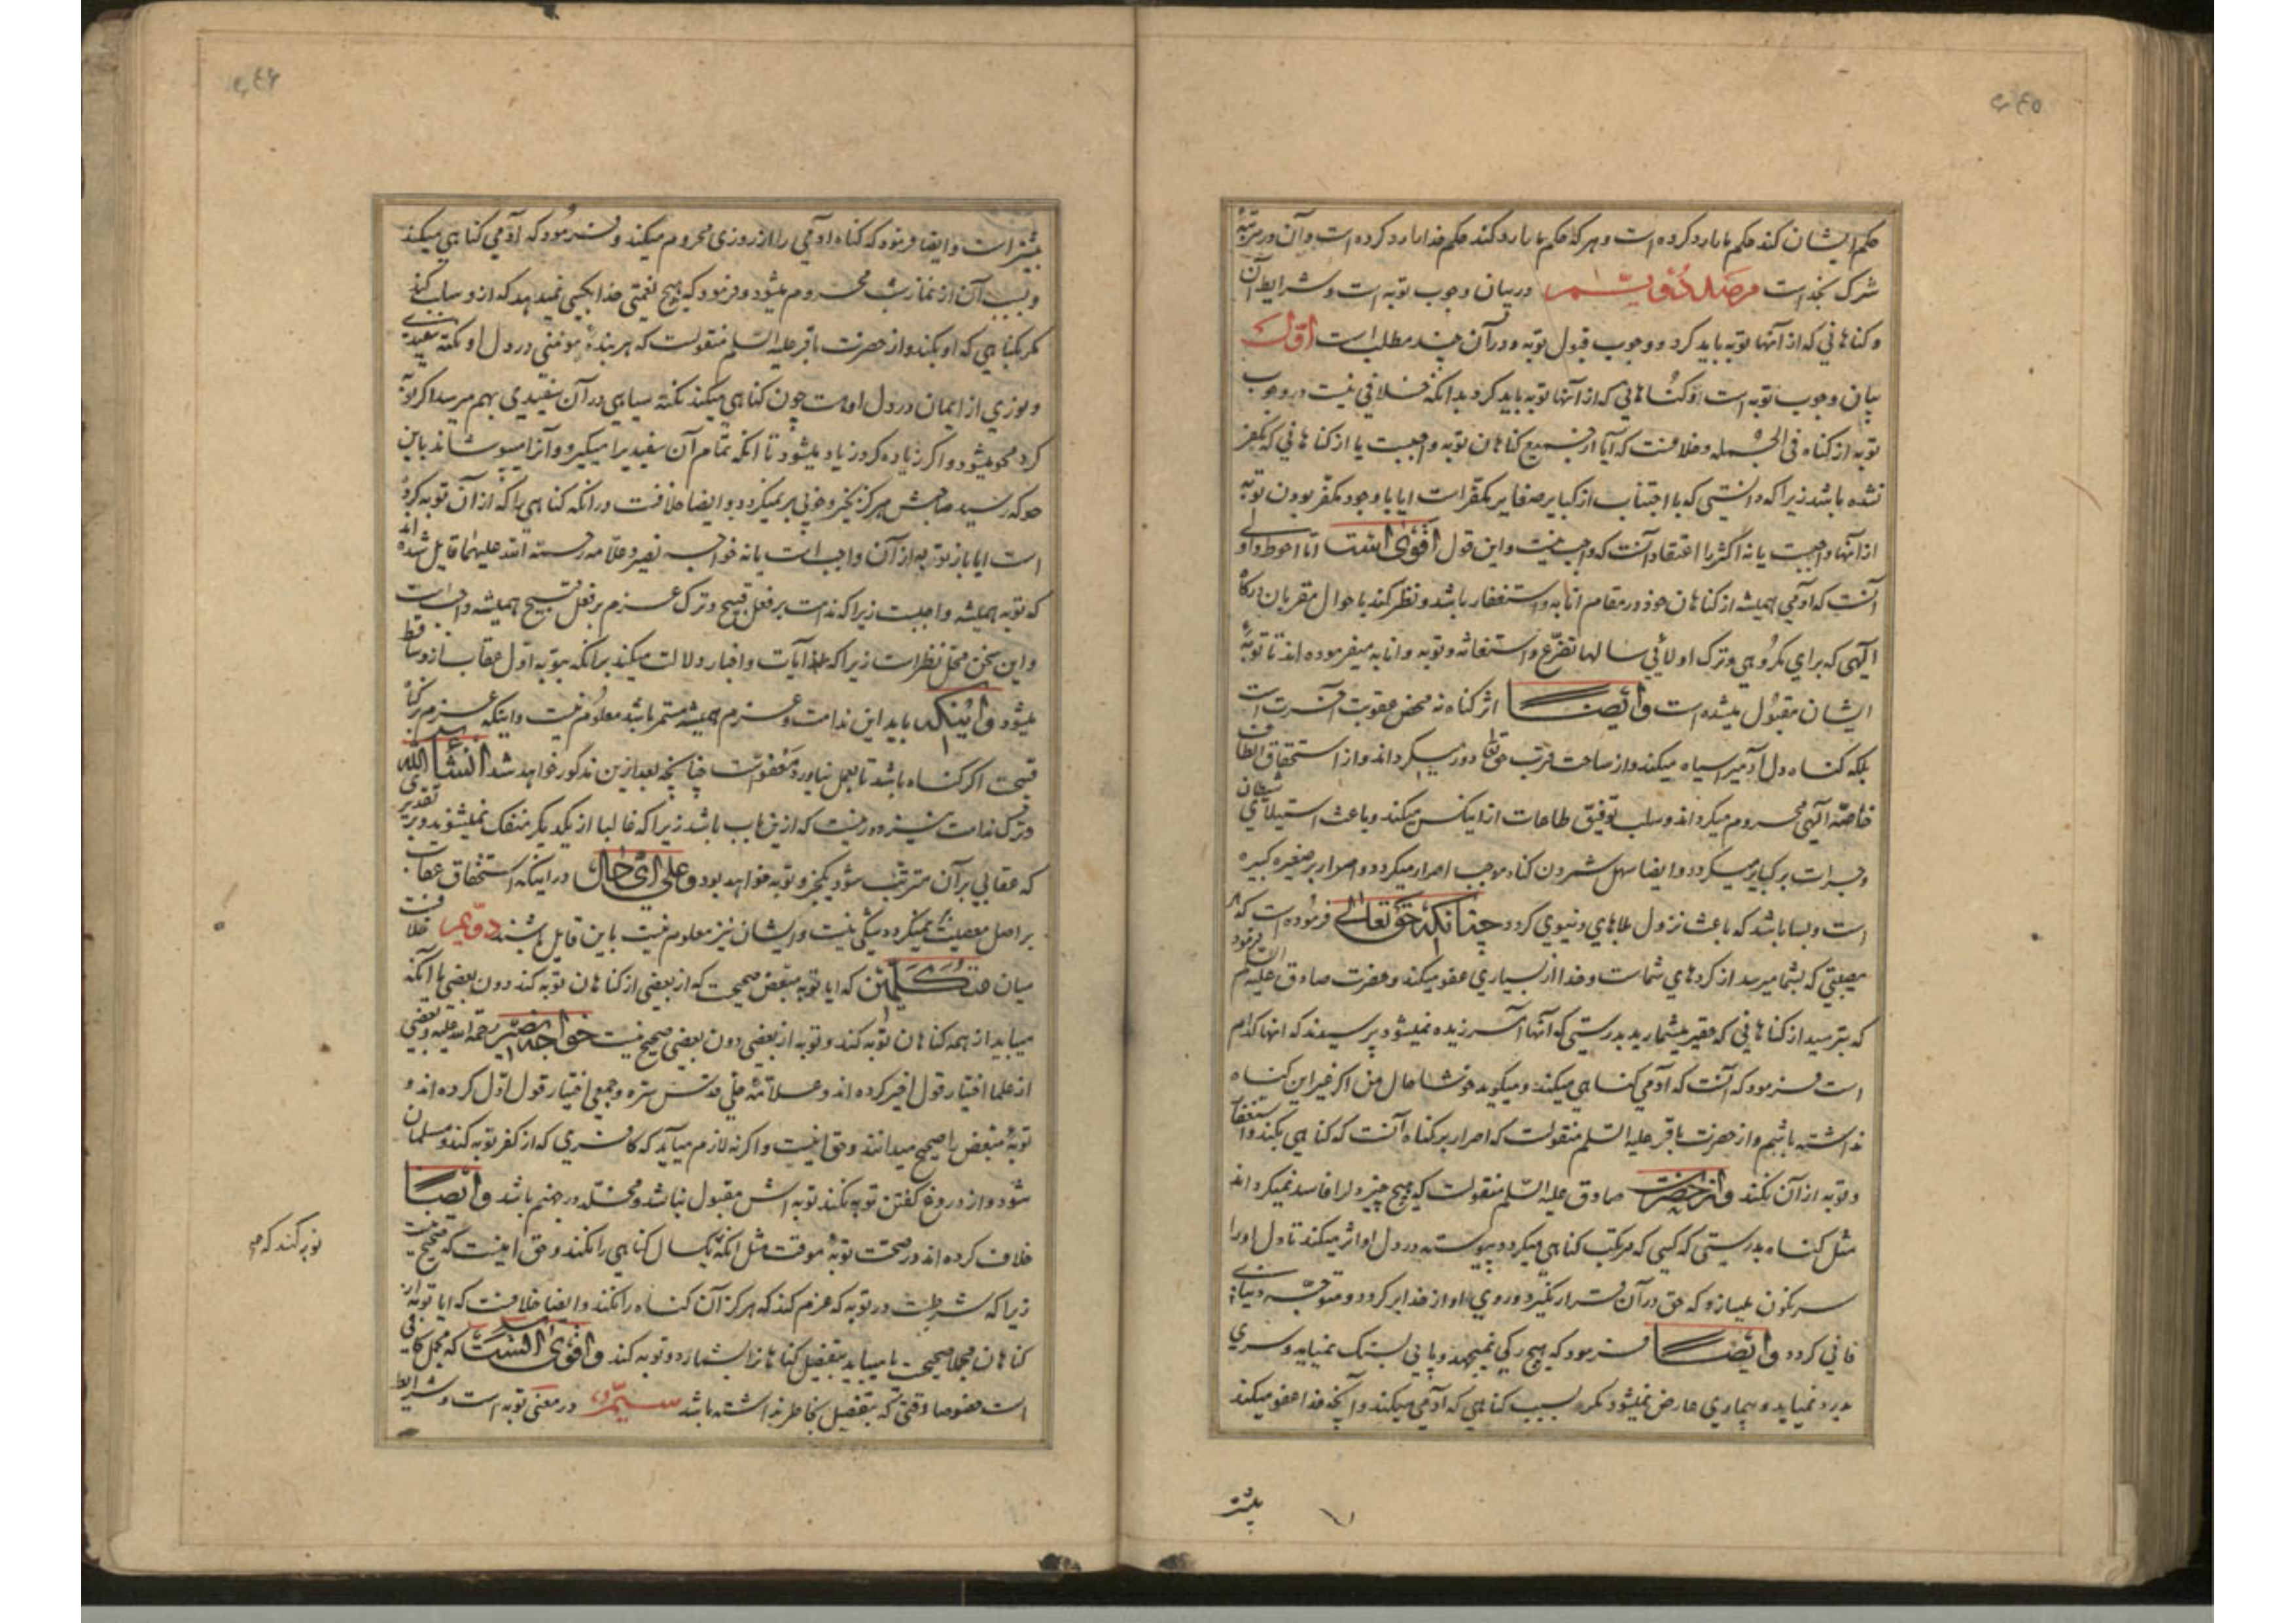 حکم ایشان کند حکم ما را رد کرده است و هر که حکم ما را رد کند حکم خدا را رد کرده است و آن در مرتبهٔ
شرک بخداست مرصد دویم در بیان وجوب توبه است و شرایط آن
و کناهانی که از آنها توبه باید کرد و وجوب قبول توبه و در آن چند مطلب است اول
بیان وجوب توبه است و کناهانی که از آنها توبه باید کرد بدانکه خلافی نیست در وجوب
توبه از کناه فی الجمله و خلافست که آیا از جمیع کناهان توبه واجبست یا از کناهانی که مکفر
نشده باشد زیرا که دانستی که با اجتناب از کبایر صغایر مکفّر است ایا با وجود مکفّر بودن توبه
از آنها واجبست یا نه اکثر را اعتقاد آنست که واجب نیست و این قول اقوی است اما احوط و اولی
آنست که آدمی همیشه از کناهان خود در مقام انابه و استغفار باشد و نظر کند باحوال مقربان درکاه
الهی که برای مکروهی و ترک اولائی سالها تضرّع و استغاثه و توبه و انابه میفرموده اند تا توبهٔ
ایشان مقبول میشده است وایضا اثر کناه نه محض عقوبت آخرت است
بلکه کناه دل آدمیرا سیاه میکند و از ساحت قرب حق تعالی دور میکرداند و از استحقاق الطاف
خاصّهٔ الهی محروم میکرداند و سلب توفیق طاعات از اینکس میکند و باعث استیلای شیطان
و جرات بر کبایر میکردد و ایضا سهل شمردن کناه موجب اصرار میکردد و اصرار بر صغیره کبیره
است و بسا باشد که باعث نزول بلاهای دنیوی کردد چنانکه حق تعالی فرموده است که هر
مصیبتی که بشما میرسد از کردهای شماست و خدا از بسیاری عفو میکند و حضرت صادق علیه السلام فرمود
که بترسید از کناهانی که حقیر میشمارید بدرستی که آنها آمرزیده نمیشود پرسیدند که انها کدام
است فرمود که آنست که آدمی کناهی میکند و میکوید خوشا حال من اکر غیر این کناه
نداشته باشم و از حضرت باقر علیه السلم منقولست که اصرار بر کناه آنست که کناهی بکند و استغفار
و توبه از آن نکند و از حضرت صادق علیه السّلم منقولست که هیچ چیز دل را فاسد نمیکرداند
مثل کناه بدرستی که کسی که مرتکب کناهی میکردد پیوسته در دل او اثر میکند تا دل او را
سرنکون میسازد که حق در آن قرار نکیرد و روی او از خدا بر کردد و متوجّه دنیای
فانی کردد وایضا فرمود که هیچ رکی نمیجهد و پایی بسنک نمیاید و سری
بدرد نمیاید و بیماری عارض نمیشود مکر بسبب کناهی که آدمی میکند و آنچه خدا عفو میکند
بیشتر
بیشتر است و ایضا فرموده که کناه آدمی را از روزی محروم میکند و فرمود که آدمی کناهی میکند
و بسبب آن از نماز شب محروم میشود و فرمود که هیچ نعمتی خدا بکسی نمیدهد که از او سلب کند
مکر بکناهی که او بکند و از حضرت باقر علیه السّلم منقولست که هر بندهٔ مؤمنی در دل او نکته سفیدی
و نوری از ایمان در دل او هست چون کناهی میکند نکته سیاهی در آن سفیدی بهم میرسد اکر توبه
کرد محو میشود و اکر زیاده کرد زیاد میشود تا انکه تمام آن سفیدیرا میکیرد و آنرا میپوشاند باین
حد که رسید صاحبش هرکز بخیر و خوبی بر نمیکردد و ایضا خلافست در انکه کناهی را که از آن توبه کرده
است ایا باز توبه از آن واجب است یا نه خواجه نصیر و علامه رحمة الله علیهما قایل شده اند
که توبه همیشه واجبست زیرا که ندامت بر فعل قبیح و ترک عزم بر فعل قبیح همیشه واجب است
و این سخن محل نظر است زیرا که آیات و اخبار دلالت میکند بر انکه بتوبه اول عقاب از او ساقط
میشود و اینکه باید این ندامت و عزم همیشه مستمر باشد معلوم نیست و اینکه عزم بر کناه
قبیحست اکر کناه باشد تا بعمل نیاورد معفوّست چنانچه بعد ازین مذکور خواهد شد انشاء الله
و ترک ندامت نیز دور نیست که ازین باب باشد زیرا که غالبا از یکدیکر منفک نمیشوند و بر تقدیری
که عقابی بر آن مترتب شود یکجزو توبه خواهد بود وعلی ای حال در اینکه استحقاق عقاب
بر اصل معصیت نمیکردد شکی نیست و ایشان نیز معلوم نیست باین قایل باشند دویم خلافست
میان متکلمین که ایا توبه مبعّض صحیحست که از بعضی از کناهان توبه کند دون بعضی یا آنکه
میباید از همه کناهان توبه کند و توبه از بعضی دون بعضی صحیح نیست خواجه نصیر رحمة الله علیه و بعضی
از علما اختیار قول اخیر کرده اند و علامهٔ حلی قدّس سرّه و جمعی اختیار قول اوّل کرده اند و
توبهٔ مبعّض را صحیح میدانند و حق اینست و اکر نه لازم میآید که کافری که از کفر توبه کند و مسلمان
شود و از دروغ کفتن توبه نکند توبه اش مقبول نباشد و مخلّد در جهنم باشد وایضا
خلاف کرده اند در صحت توبهٔ موقت مثل انکه یکسال کناهی را نکند و حق اینست که صحیح نیست
زیرا که شرطست در توبه که عزم کند که هرکز آن کناه را نکند و ایضا خلافست که ایا توبه از
کناهان مجملا صحیحست یا میباید بتفصیل کناهانرا بشمارد و توبه کند و اقوی آنست که مجمل کافی
است خصوصا وقتی که بتفصیل بخاطر نداشته باشد سیّم در معنی توبه است و شرایط
توبه کند که